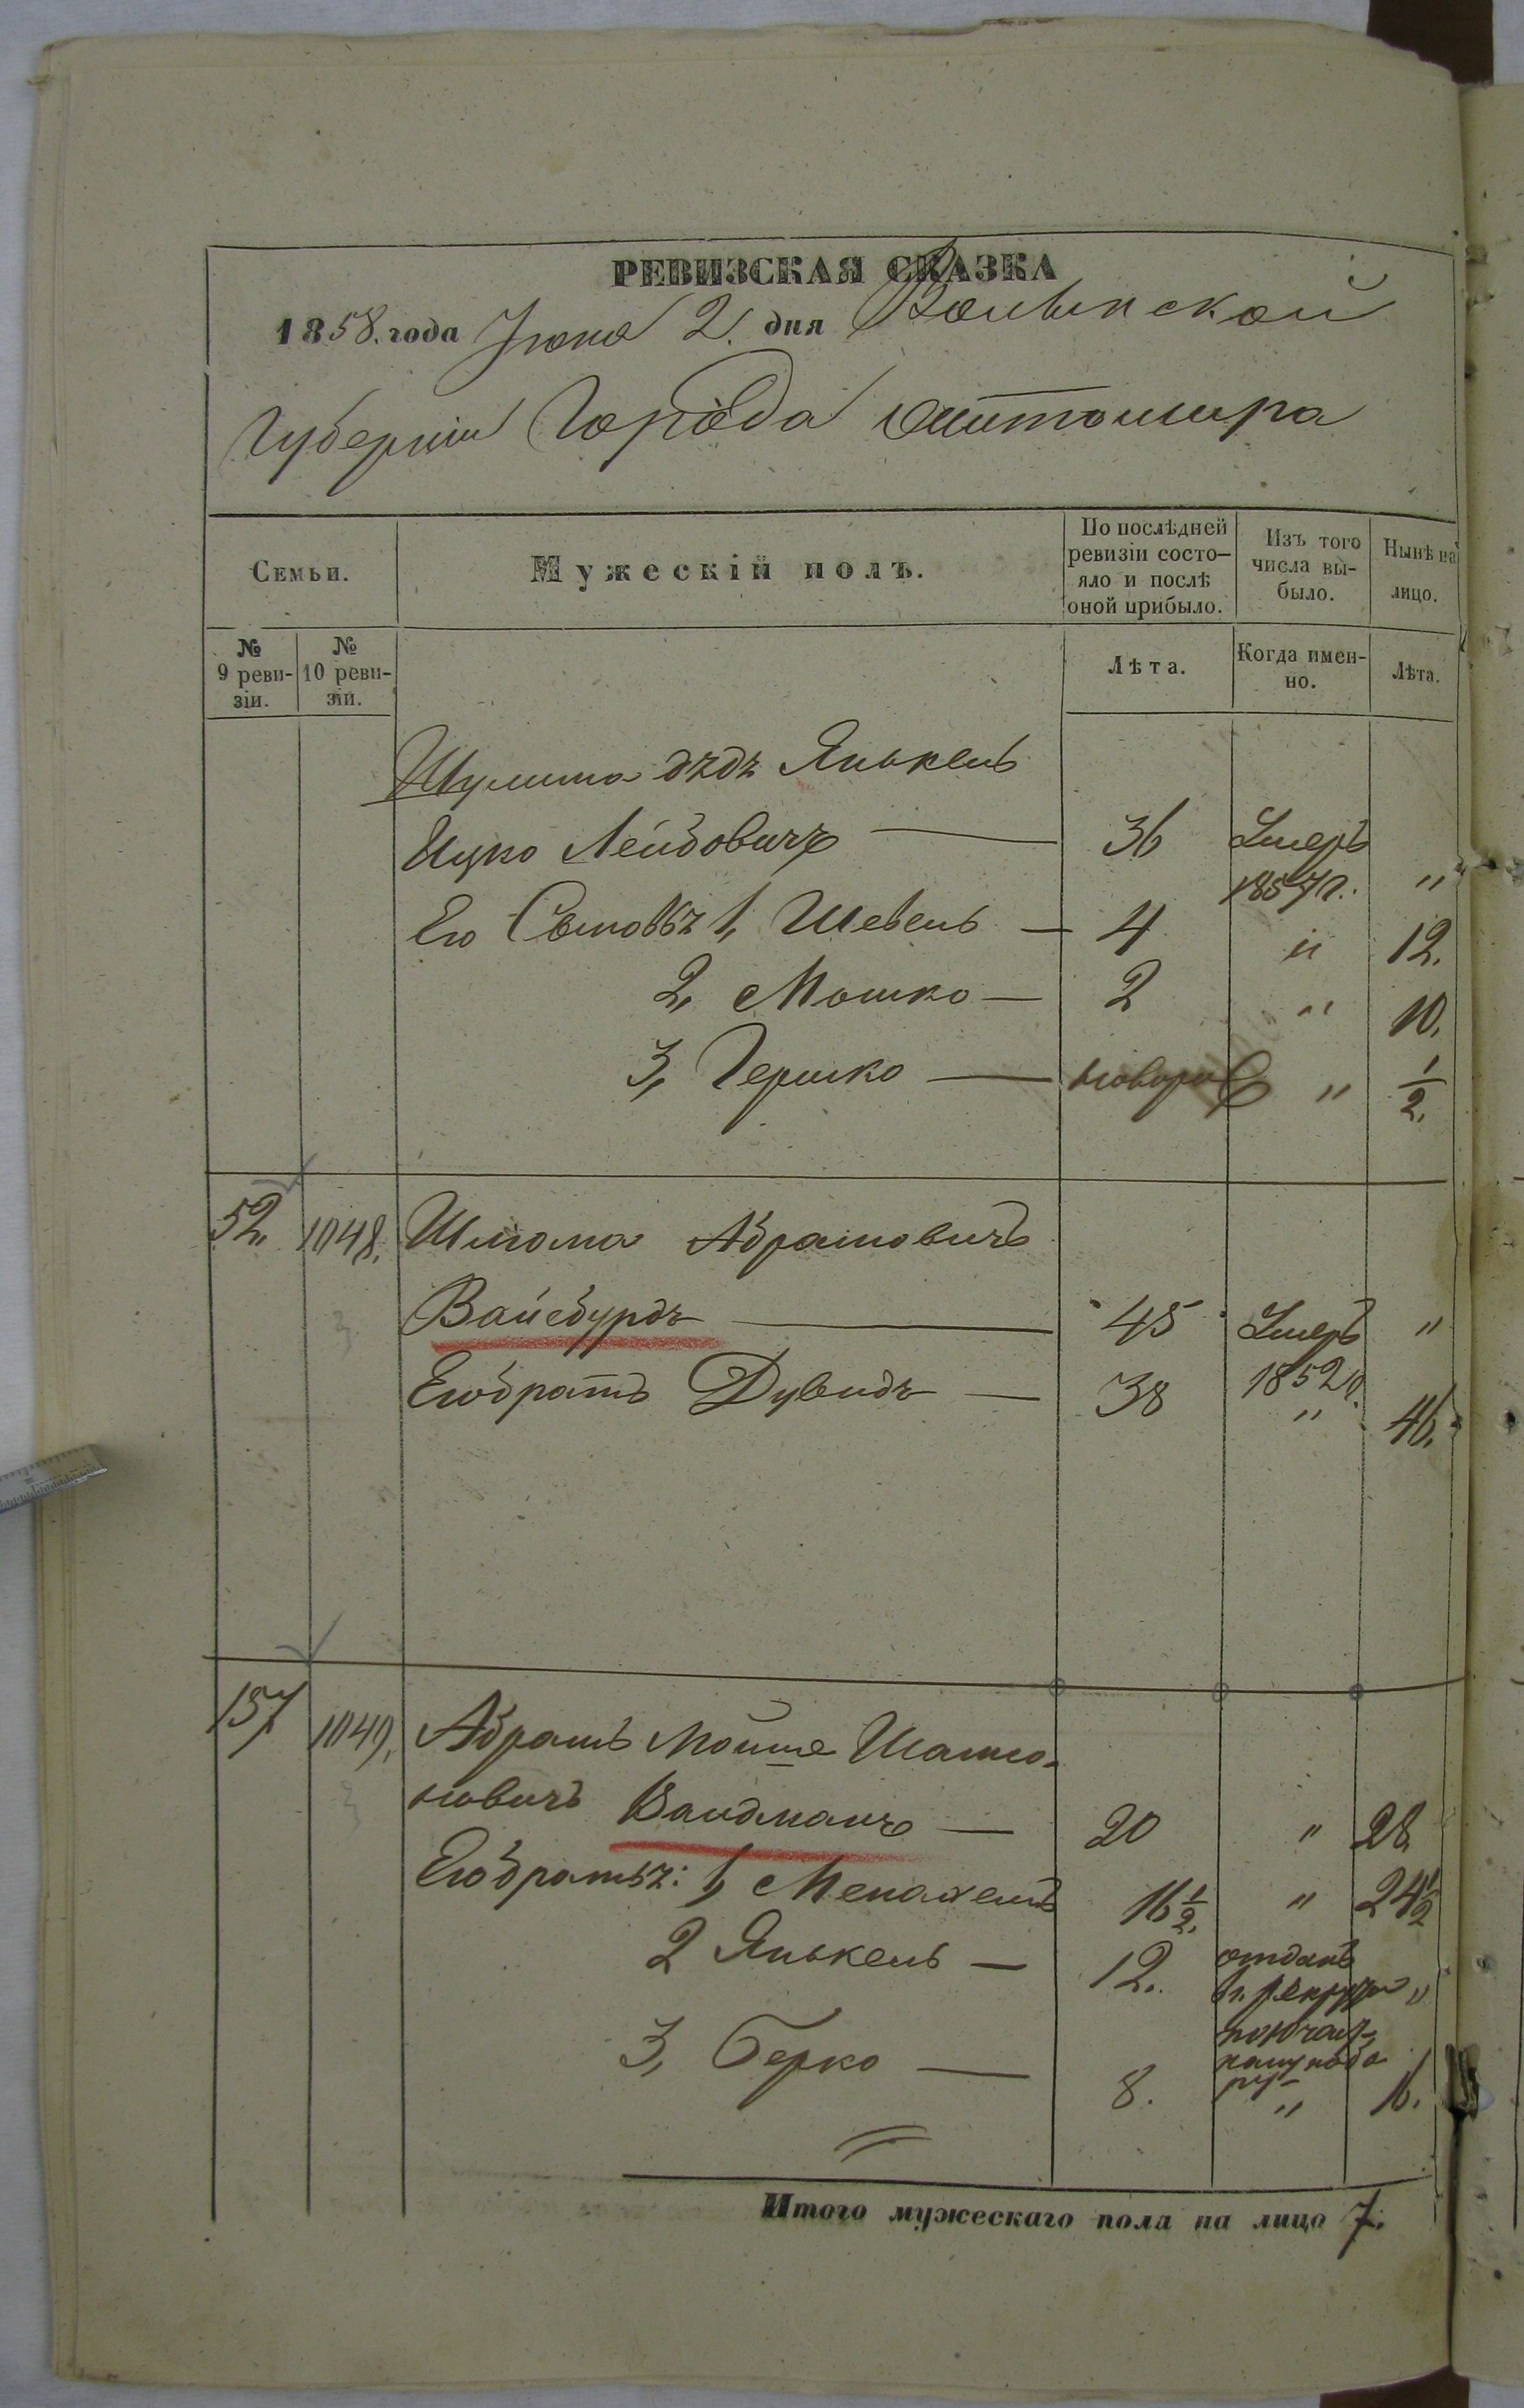 РЕВИЗСКАЯ СКАЗКА
1858. года Июня 2. дня Волынской
Губерніи Города Житомира
Семьи.
Мужескій полъ.
По послѣдней ревизіи состо-яло и послѣ оной прибыло.
Изъ того числа вы-было.
Нынѣ на лицо.
№ 9 реви-зіи.
№ 10 реви-зіи.
Лѣта.
Когда имен-но.
Лѣта.
дѣдъ Янькель
Ицко Лейбовичъ — 36 Умеръ 1857 г. "
Его Сыновья 1, Шевель — 4 " 12.
2, Мошко — 2 " 10.
3, Гершко — новорож " 1/2.
52. 1048. Шлiома Абрамовичъ
Вайсбурдъ — 45 Умеръ 1852 г. "
Его братъ Дувидъ — 38 " 46.
157 1049. Абрамъ Мойше Шаmсо-
новичъ Вайдманъ — 20 " 28
Его братья: 1, Менахемъ 16 1/2. " 24 1/2
2 Янькель — 12. отданъ въ рекруты "
3, Берко — 8. " 16.
Итого мужескаго пола на лицо 7.